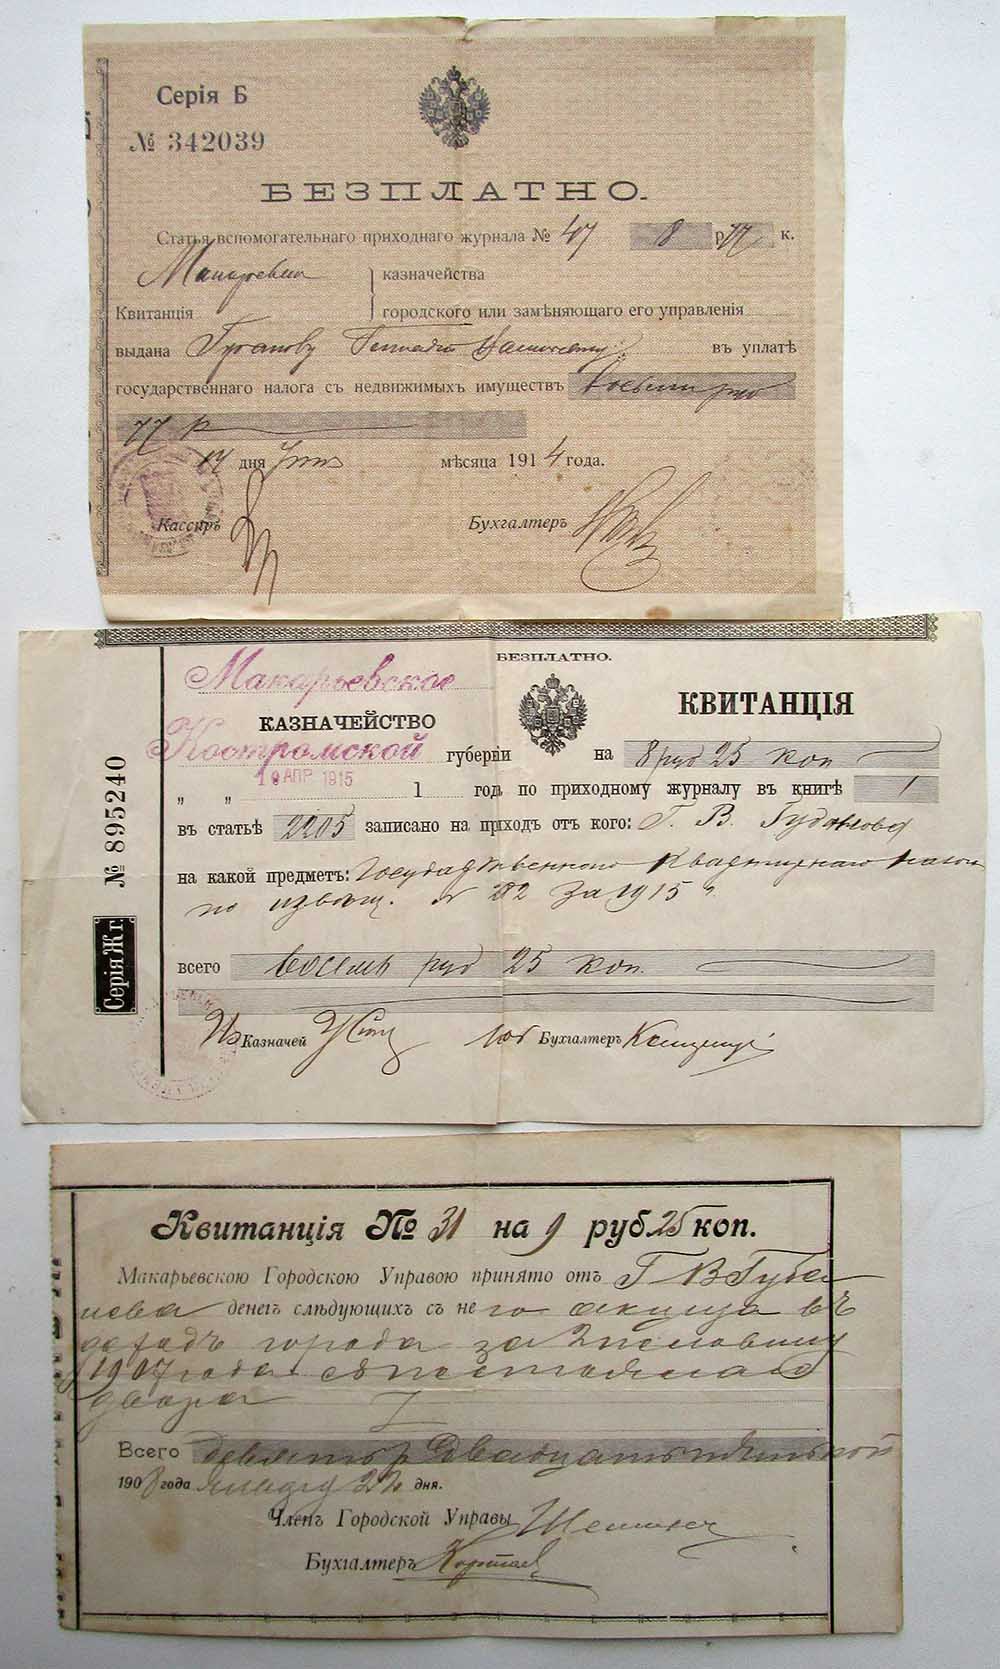 Серія Б
№ 342039
БЕЗПЛАТНО.
Статья вспомогательнаго приходнаго журнала № 47 8 р 77 к.
казначейства
Квитанція городского или замѣняющаго его управленія
выдана въ уплатѣ
государственнаго налога съ недвижимыхъ имуществъ восемь руб
77 к
17 дня мѣсяца 1914 года.
Кассиръ Бухгалтеръ
БЕЗПЛАТНО.
Макарьевское
КАЗНАЧЕЙСТВО КВИТАНЦІЯ
Костромской губерніи на 8 руб 25 коп
19 АПР. 1915
" " 1 годъ по приходному журналу въ книгѣ 1
въ статьѣ 2205 записано на приходъ отъ кого: Г. В.
на какой предметъ: Государственнаго квартирнаго налога
по извѣщ. № 22 за 1915 г.
всего восемь руб 25 коп.
Казначей Бухгалтеръ
№ 895240
Серія Ж г.
Квитанція № 31 на 9 руб. 25 коп.
Макарьевскою Городскою Управою принято отъ Г В Губа
нова денегъ слѣдующихъ съ него акциза въ
доходъ города за 2 половину
1907 года съ постоялаго
двора
Всего девять р двадцать пять коп
1908 года Января 22 дня.
Членъ Городской Управы
Бухгалтеръ